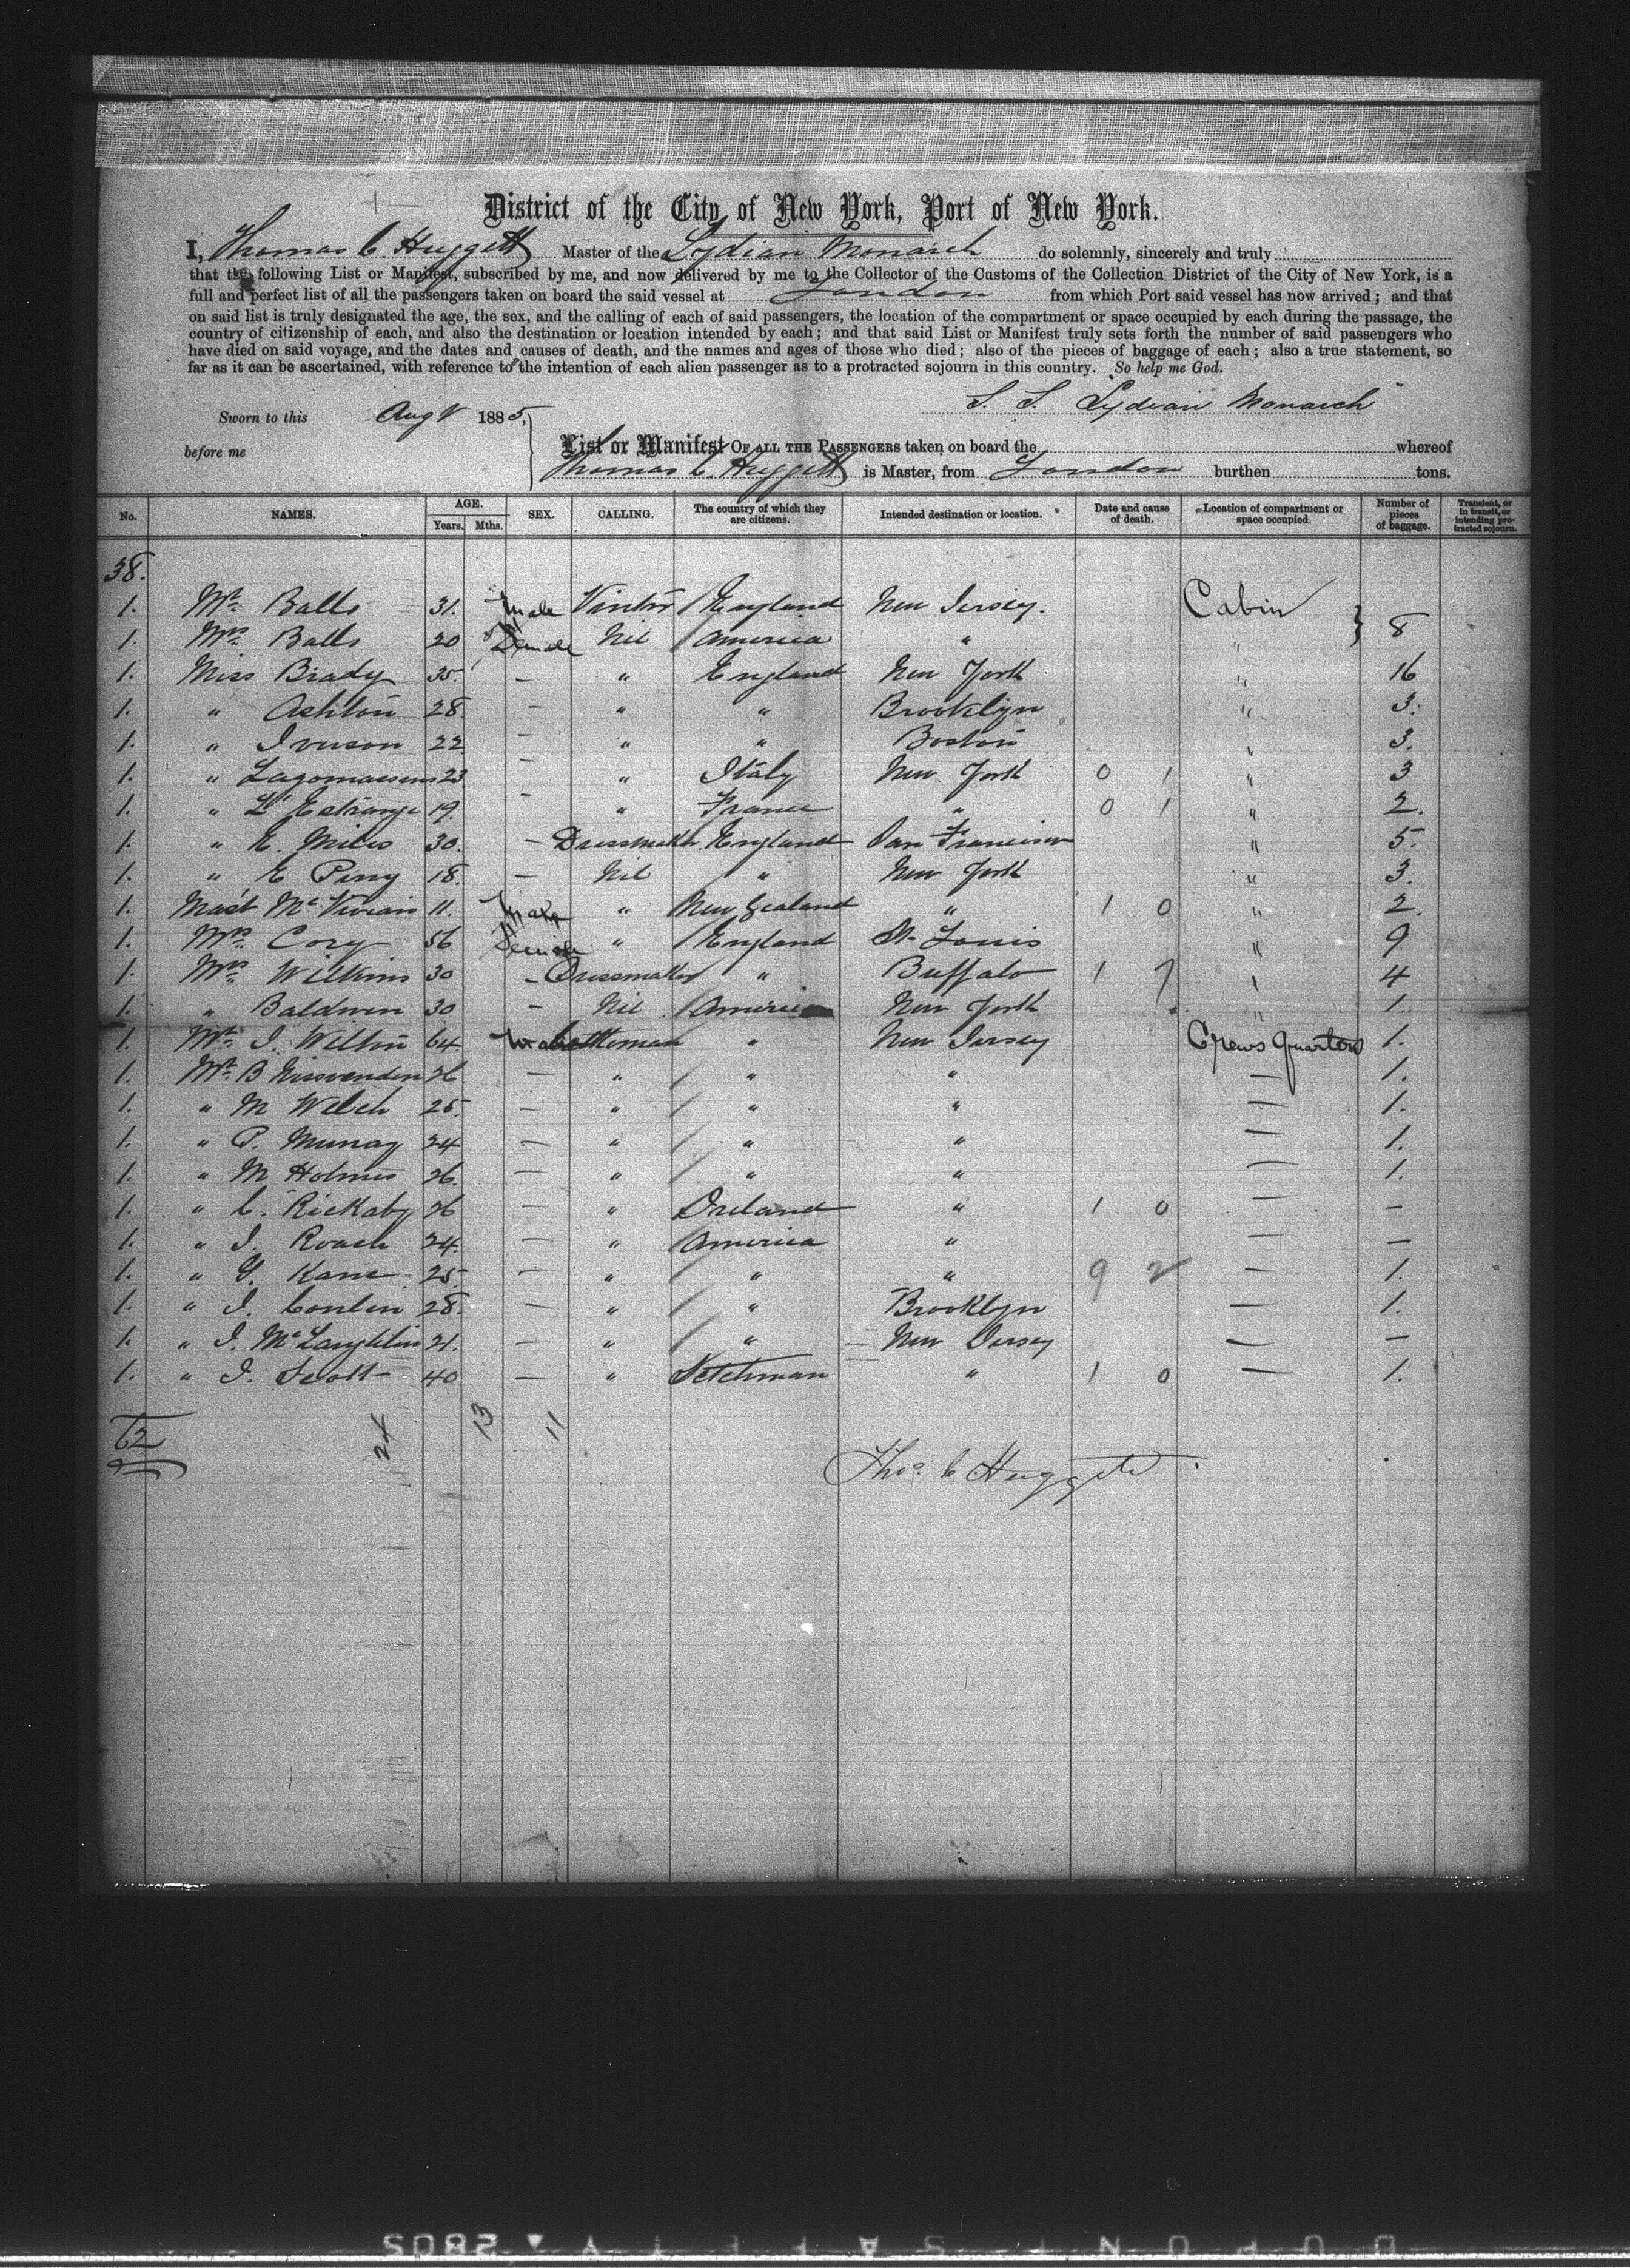 District of the City of New York, Port of New York.
I, Thomas C. Huggett Master of the Lydian Monarch do solemnly, sincerely and truly
that the following List or Manifest, subscribed by me, and now delivered by me to the Collector of the Customs of the Collection District of the City of New York, is a
full and perfect list of all the passengers taken on board the said vessel at London from which Port said vessel has now arrived; and that
on said list is truly designated the age, the sex, and the calling of each of said passengers, the location of the compartment or space occupied by each during the passage, the
country of citizenship of each, and also the destination or location intended by each; and that said List or Manifest truly sets forth the number of said passengers who
have died on said voyage, and the dates and causes of death, and the names and ages of those who died; also of the pieces of baggage of each; also a true statement, so
far as it can be ascertained, with reference to the intention of each alien passenger as to a protracted sojourn in this country. So help me God.
Sworn to this Aug 1885,
S. S. Lydian Monarch
before me
List or Manifest OF ALL THE PASSENGERS taken on board the whereof
Thomas C. Huggett is Master, from London burthen tons.
No. NAMES. AGE. Years. Mths. SEX. CALLING. The country of which they are citizens. Intended destination or location. Date and cause of death. Location of compartment or space occupied. Number of pieces of baggage. Transient, or in transit, or intending protracted sojourn.
38.
1. Mr. Balls 31. Male England New Jersey. Cabin
1. Mrs. Balls 20 Female Nil America " " } 8
1. Miss Brady 35. — " England New York " 16
1. " Ashton 28. — " " Brooklyn " 3.
1. " Iverson 22 — " " Boston " 3.
1. " 23 — " Italy New York 0 1 " 3
1. " L'Estrange 19. — " France " 0 1 " 2.
1. " E. Miles 30. — Dressmaker England San Francisco " 5.
1. " E Perry 18. — Nil " New York " 3.
1. Mast. Mc Vivian 11. Male " New Zealand " 1 0 " 2.
1. Mrs. Cory 56 Female " England St. Louis " 9
1. Mrs. Wilkins 30 — Dressmaker " Buffalo 1 7 " 4
1. " Baldwin 30 — Nil America New York " 1.
1. Mr. J. Wilton 64. Male Cattleman " New Jersey Crews Quarters 1.
1. Mr. B 26 — " " " — 1.
1. " M Welch 25. — " " " — 1.
1. " P. Murray 24 — " " " — 1.
1. " M Holmes 26. — " " " — 1.
1. " C. Rickaby 26 — " Ireland " 1 0 — —
1. " J. Roach 24. — " America " — —
1. " Kane 25. — " " " 9 2 — 1.
1. " J. Conlin 28. — " " Brooklyn — 1.
1. " J. McLaughlin 21. — " " New Jersey — —
1. " J. Scott 40 — " " 1 0 — 1.
62 24 13 11
Thos. C Huggett